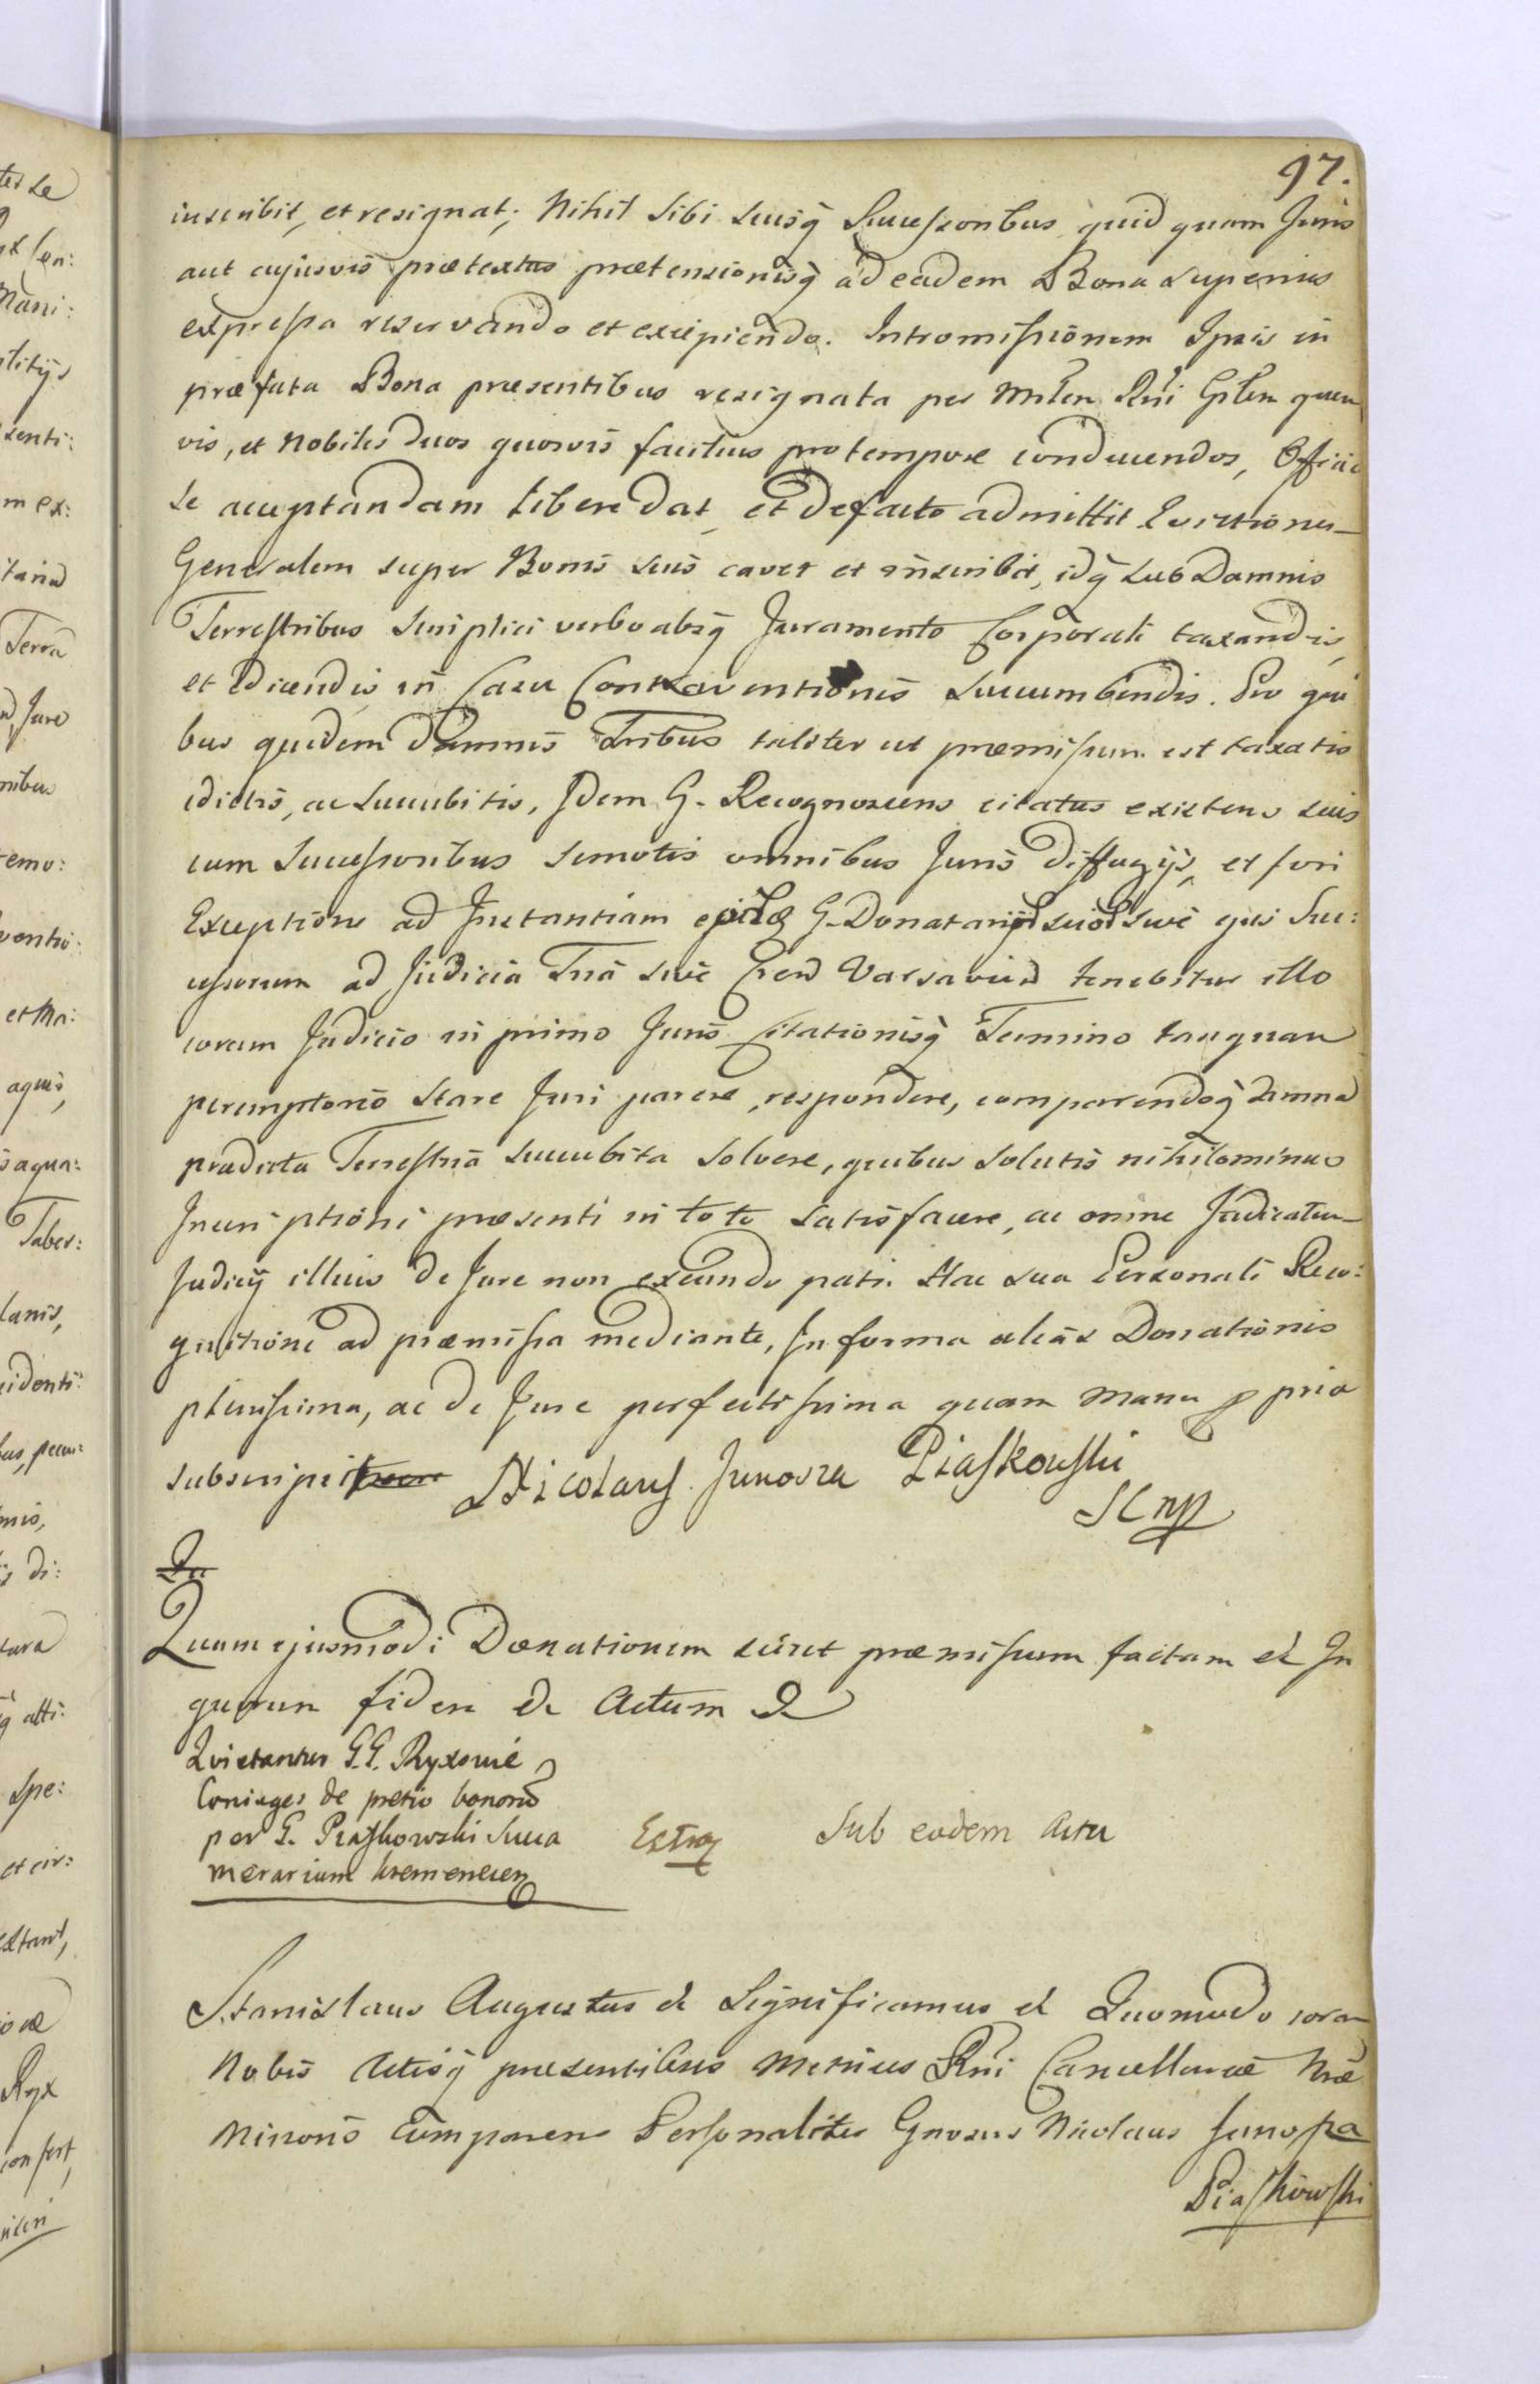 97.
inscribit, et resignat; Nihil sibi suisq̃ Successoribus quid quam Juris
aut cujusvis prætextus prætensionisq̃ ad eadem Bona superius
expressa reservando et excipiendo. Intromissionem Ipsis in
præfata Bona præsentibus resignata per Mñlem Rñi Gñlem quem
vis, et Nobiles duos quosvis facilius pro tempore conducendos, Officio
se acceptandam libere dat, et de facto admittit Evictionem
Generalem super Bonis suis cavet et inscribit, idq̃ sub Damnis
Terrestribus simplici verbo absq̃ Juramento Corporali taxandis,
et edicendis, in Casu Contraventionis succumbendis. Pro qui
bus quidem Damnis Tribus taliter ut præmissum est taxatis
edictis, ac succubitis, Idem G. Recognoscens citatus existens suis
cum Successoribus semotis omnibus Juris diffugijs, et fori
Exceptione ad Instantiam G. Donatarij sive ejus Suc:
cessorum ad Judicia Tria sive Varsavien tenebitur illo
coram Judicio in primo Juris Citationisq̃ Termino tanquam
peremptorio stare Juri parere, respondere, comparendoq̃ damna
prædicta Terrestria succubita solvere, quibus solutis nihilominus
Inscriptioni præsenti in toto satisfacere, ac omne Judicatum
Judicij illius de Jure non exeundo pati. Hac sua Personali Reco:
gnitione ad præmissa mediante, In forma alias Donationis
plenissima, ac de Jure perfectissima quam manu ppria
subscripsit Nicolaus Junosza Piaskowski
SCmp
Qu
Quam ejusmodi Donationem sicut præmissum factam et In
quorum fidem et Actum D
Quietantur G.G. Ryxowie
Coniuges de pretio bonorũ
per G. Piaskowski Succa
merarium kremenecen
Extra
Sub eodem Actu
Stanislaus Augustus et Significamus et Quomodo coram
Nobis Actisq̃ præsentibus Metrices Rñi Cancellariæ Nræ
Minoris comparens Personaliter Gnosus Nicolaus Junosza
Piaskowski